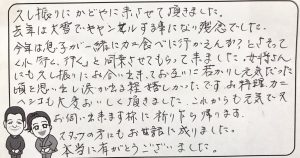 久し振りにかどやに来させて頂きました。
去年は大雪でキャンセルする事になり残念でした。
今年は息子が一緒にカニ食べに行かえんか?とさそって
く小行く、行くと同乗させてもらって来ました。女将さん
にも久し振りにお会い出来てお互いに若かりし元気だった
頃を思い出し涙がでる程嬉しかったです。お料理、カニ
ヘシコも大変おいしく頂きました。これからも元気で又
お伺い出来ます様に祈り乍ら帰ります。
スタッフの方にもお世話に成りました。
本当に有がとうございました。